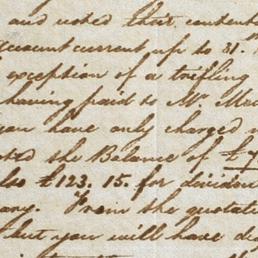 and noted their content
account current up to 31.
exception of a trifling
having paid to Mr.
you have only charged
the Balance of £7
£123. 15. for dividend
any. From the quotati
but you will have